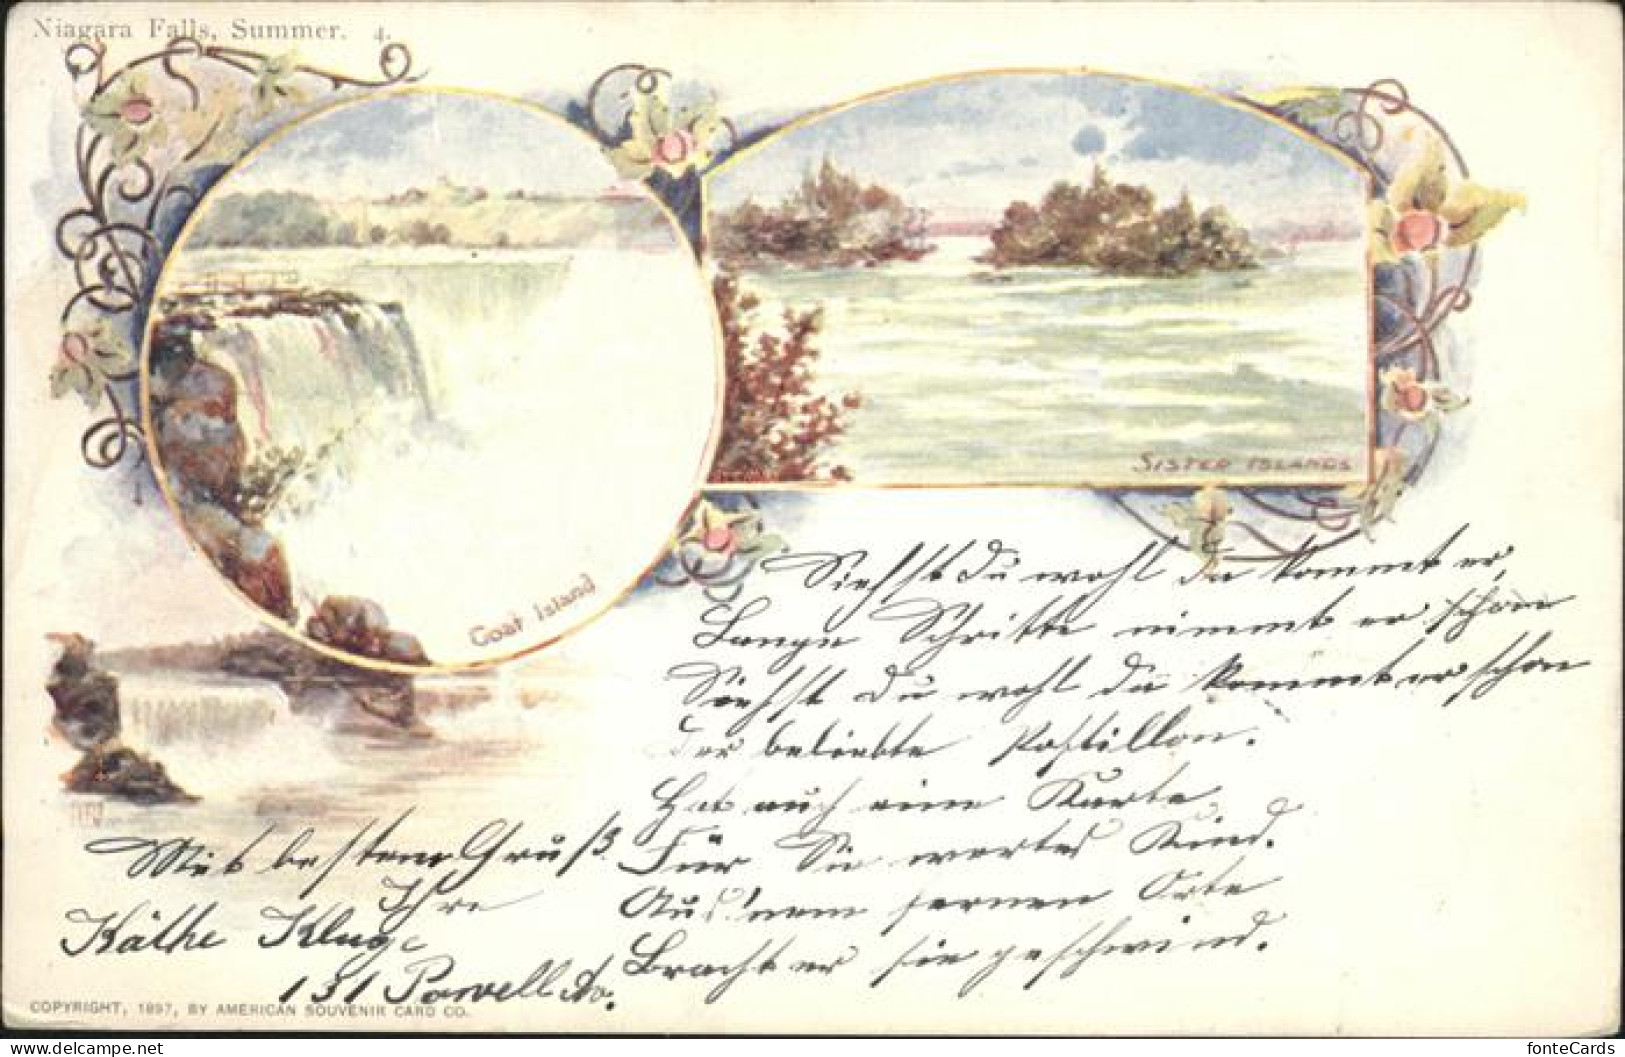 Niagara Falls, Summer. 4.
Goat Island
SISTER ISLANDS
Siehst du wohl da kommt er,
Lange Schritte nimmt er schon
Siehst du wohl da kommt er schon
Der beliebte Postillon.
Hat auch eine Karte
Für Sie wertes Kind.
Aus'nem fernen Orte
Bracht er sie geschwind.
Mit besten Gruß
Ihre
Käthe Kluge
131 Powell
COPYRIGHT, 1897, BY AMERICAN SOUVENIR CARD CO.
delcampe.net
fonteCards